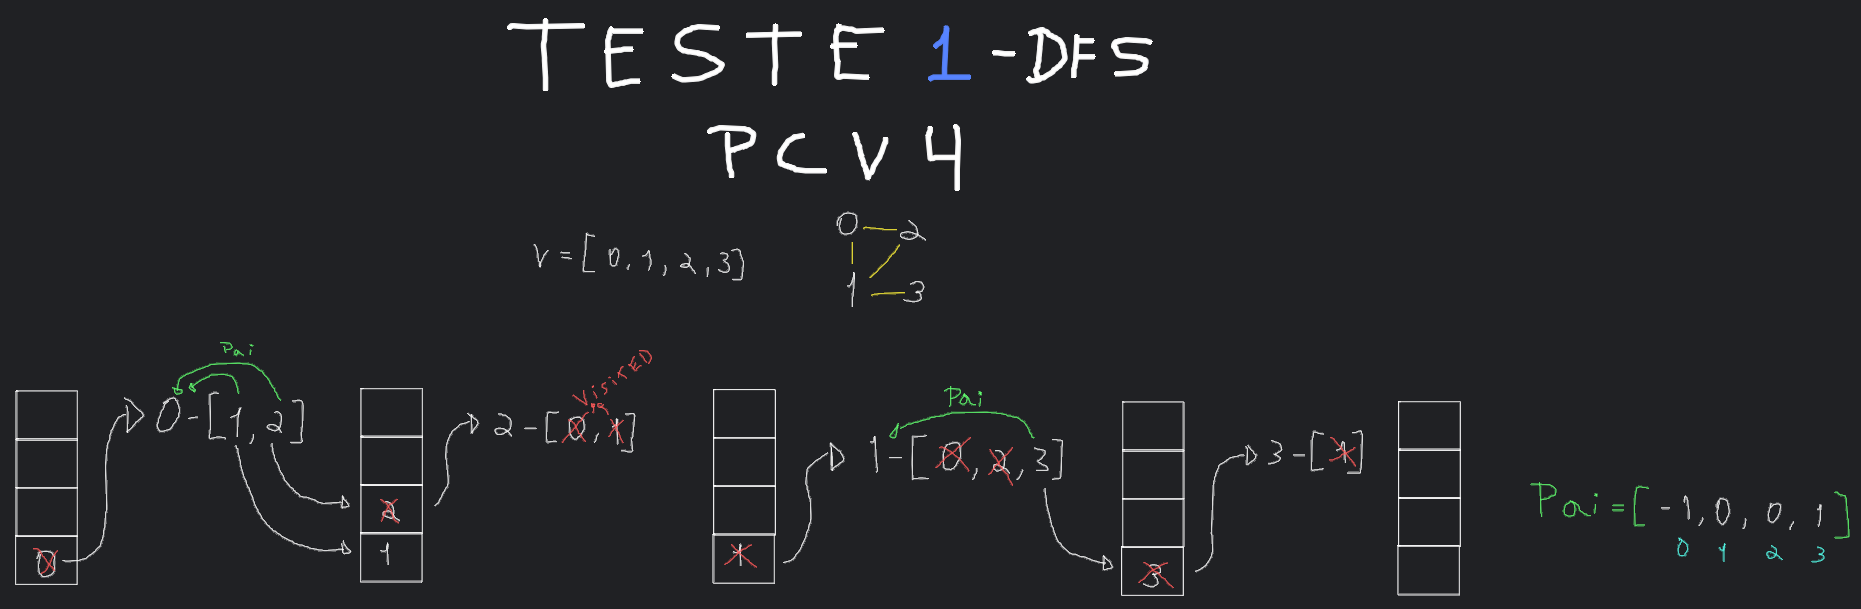 TESTE 1-DFS
PCV4
V=[0,1,2,3]
0 2
1 3
Pai
0-[1,2]
0
2
1
visitED
2-[0,1]
1
Pai
1-[0,2,3]
3
3-[1]
Pai=[-1,0,0,1]
0 1 2 3